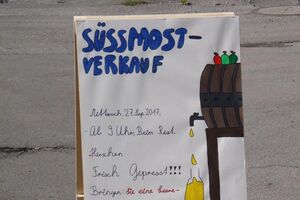 SÜSSMOST-
VERKAUF
Mittwoch, 27. Sep. 2017,
- Ab 9 Uhr, Beim Rest.
Hirschen
Frisch Gepresst!!!
Bringen Sie eine leere